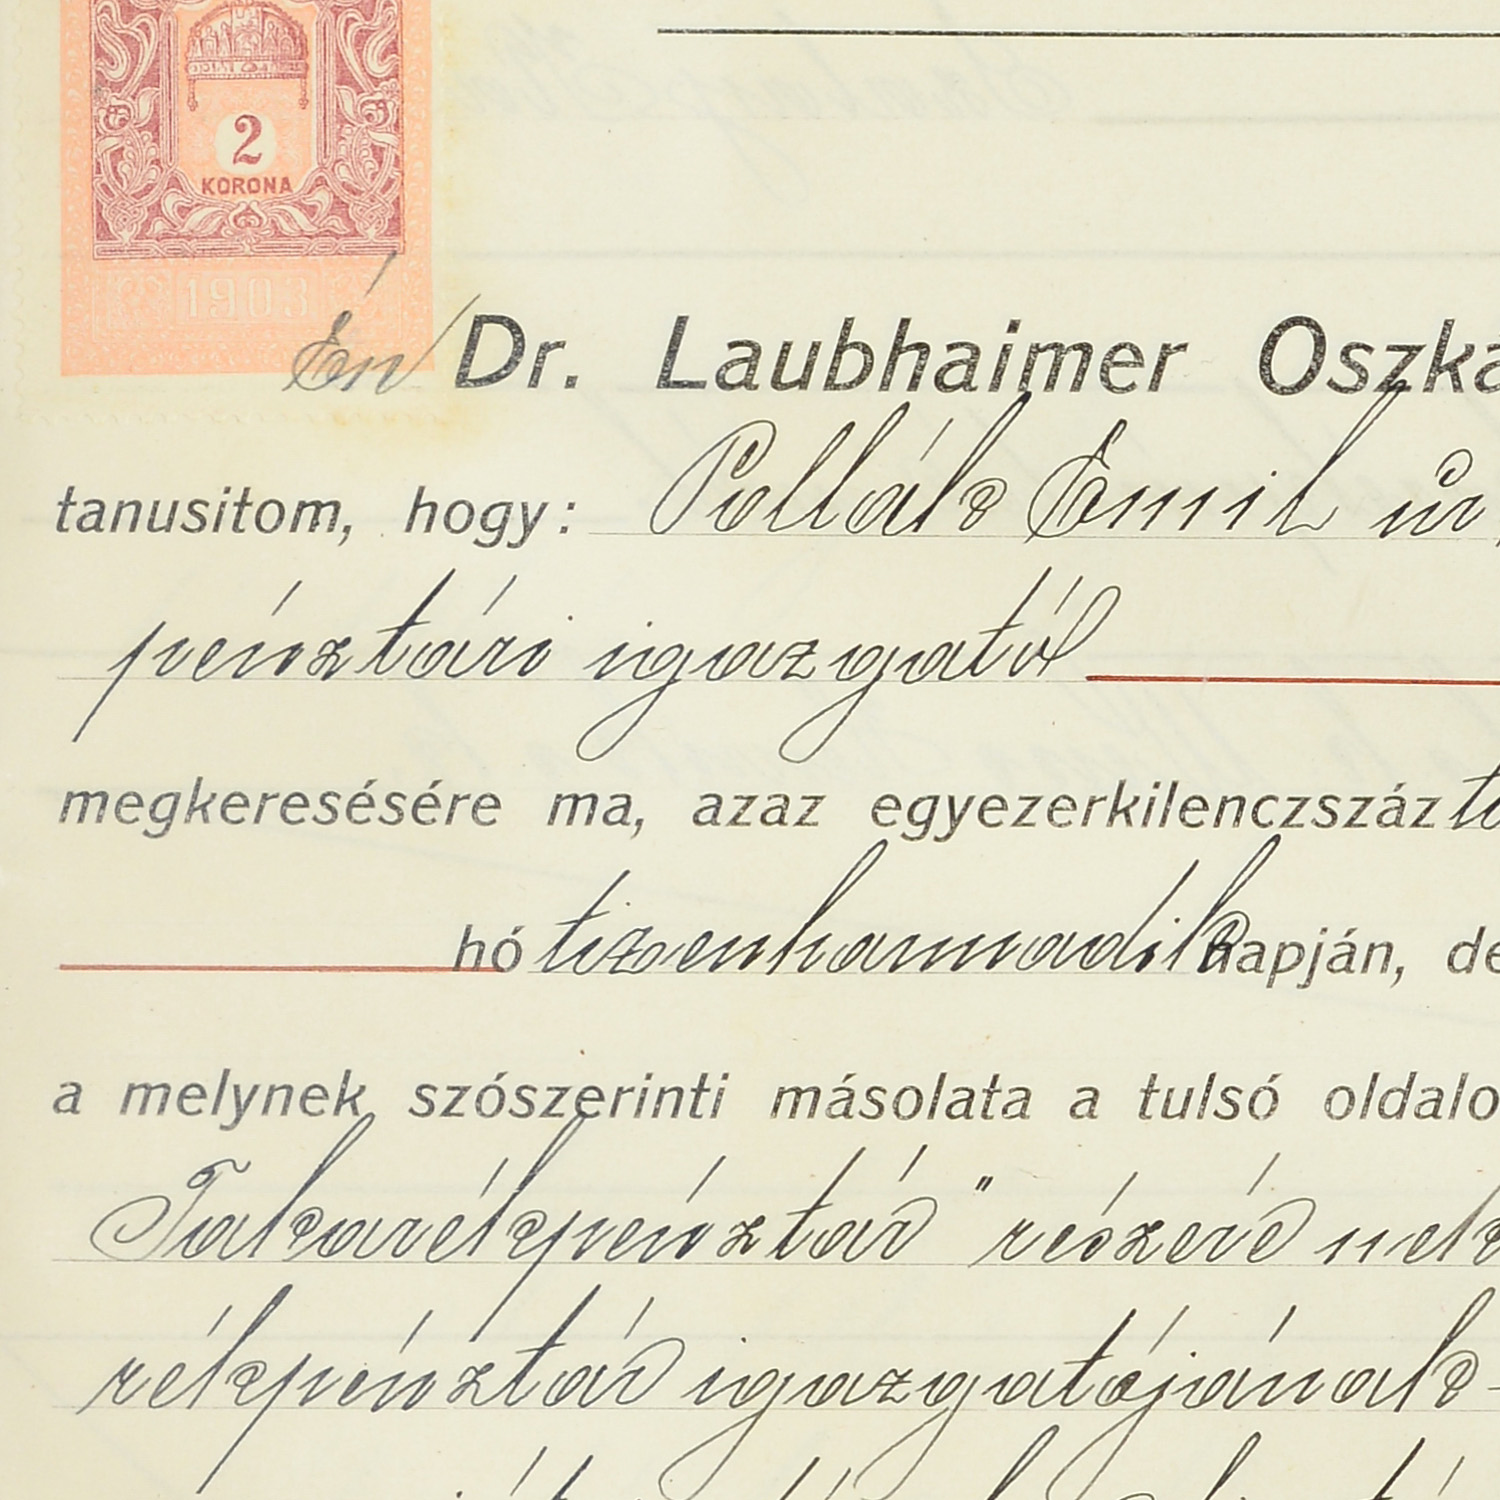 2
KORONA
1903
Én Dr. Laubhaimer Oszká
tanusitom, hogy: Pollák Emil úr,
pénztári igazgató
megkeresésére ma, azaz egyezerkilenczszáz ti
hó tizenharmadik napján, de
a melynek szószerinti másolata a tulsó oldalo
Takarékpénztár" részére nek
rékpénztár igazgatójának-